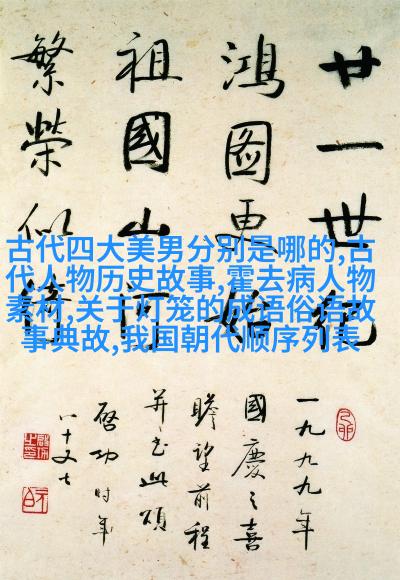 廿一世紀
鴻圖更始
祖國山河
繁榮似綺
古代四大美男分别是哪的,古
代人物历史故事,霍去病人物
素材,关于灯笼的成语俗语故
事典故,我国朝代顺序列表
一九九九年
國慶之喜
瞻望前程
并书此頌
啓功时年
八十又七